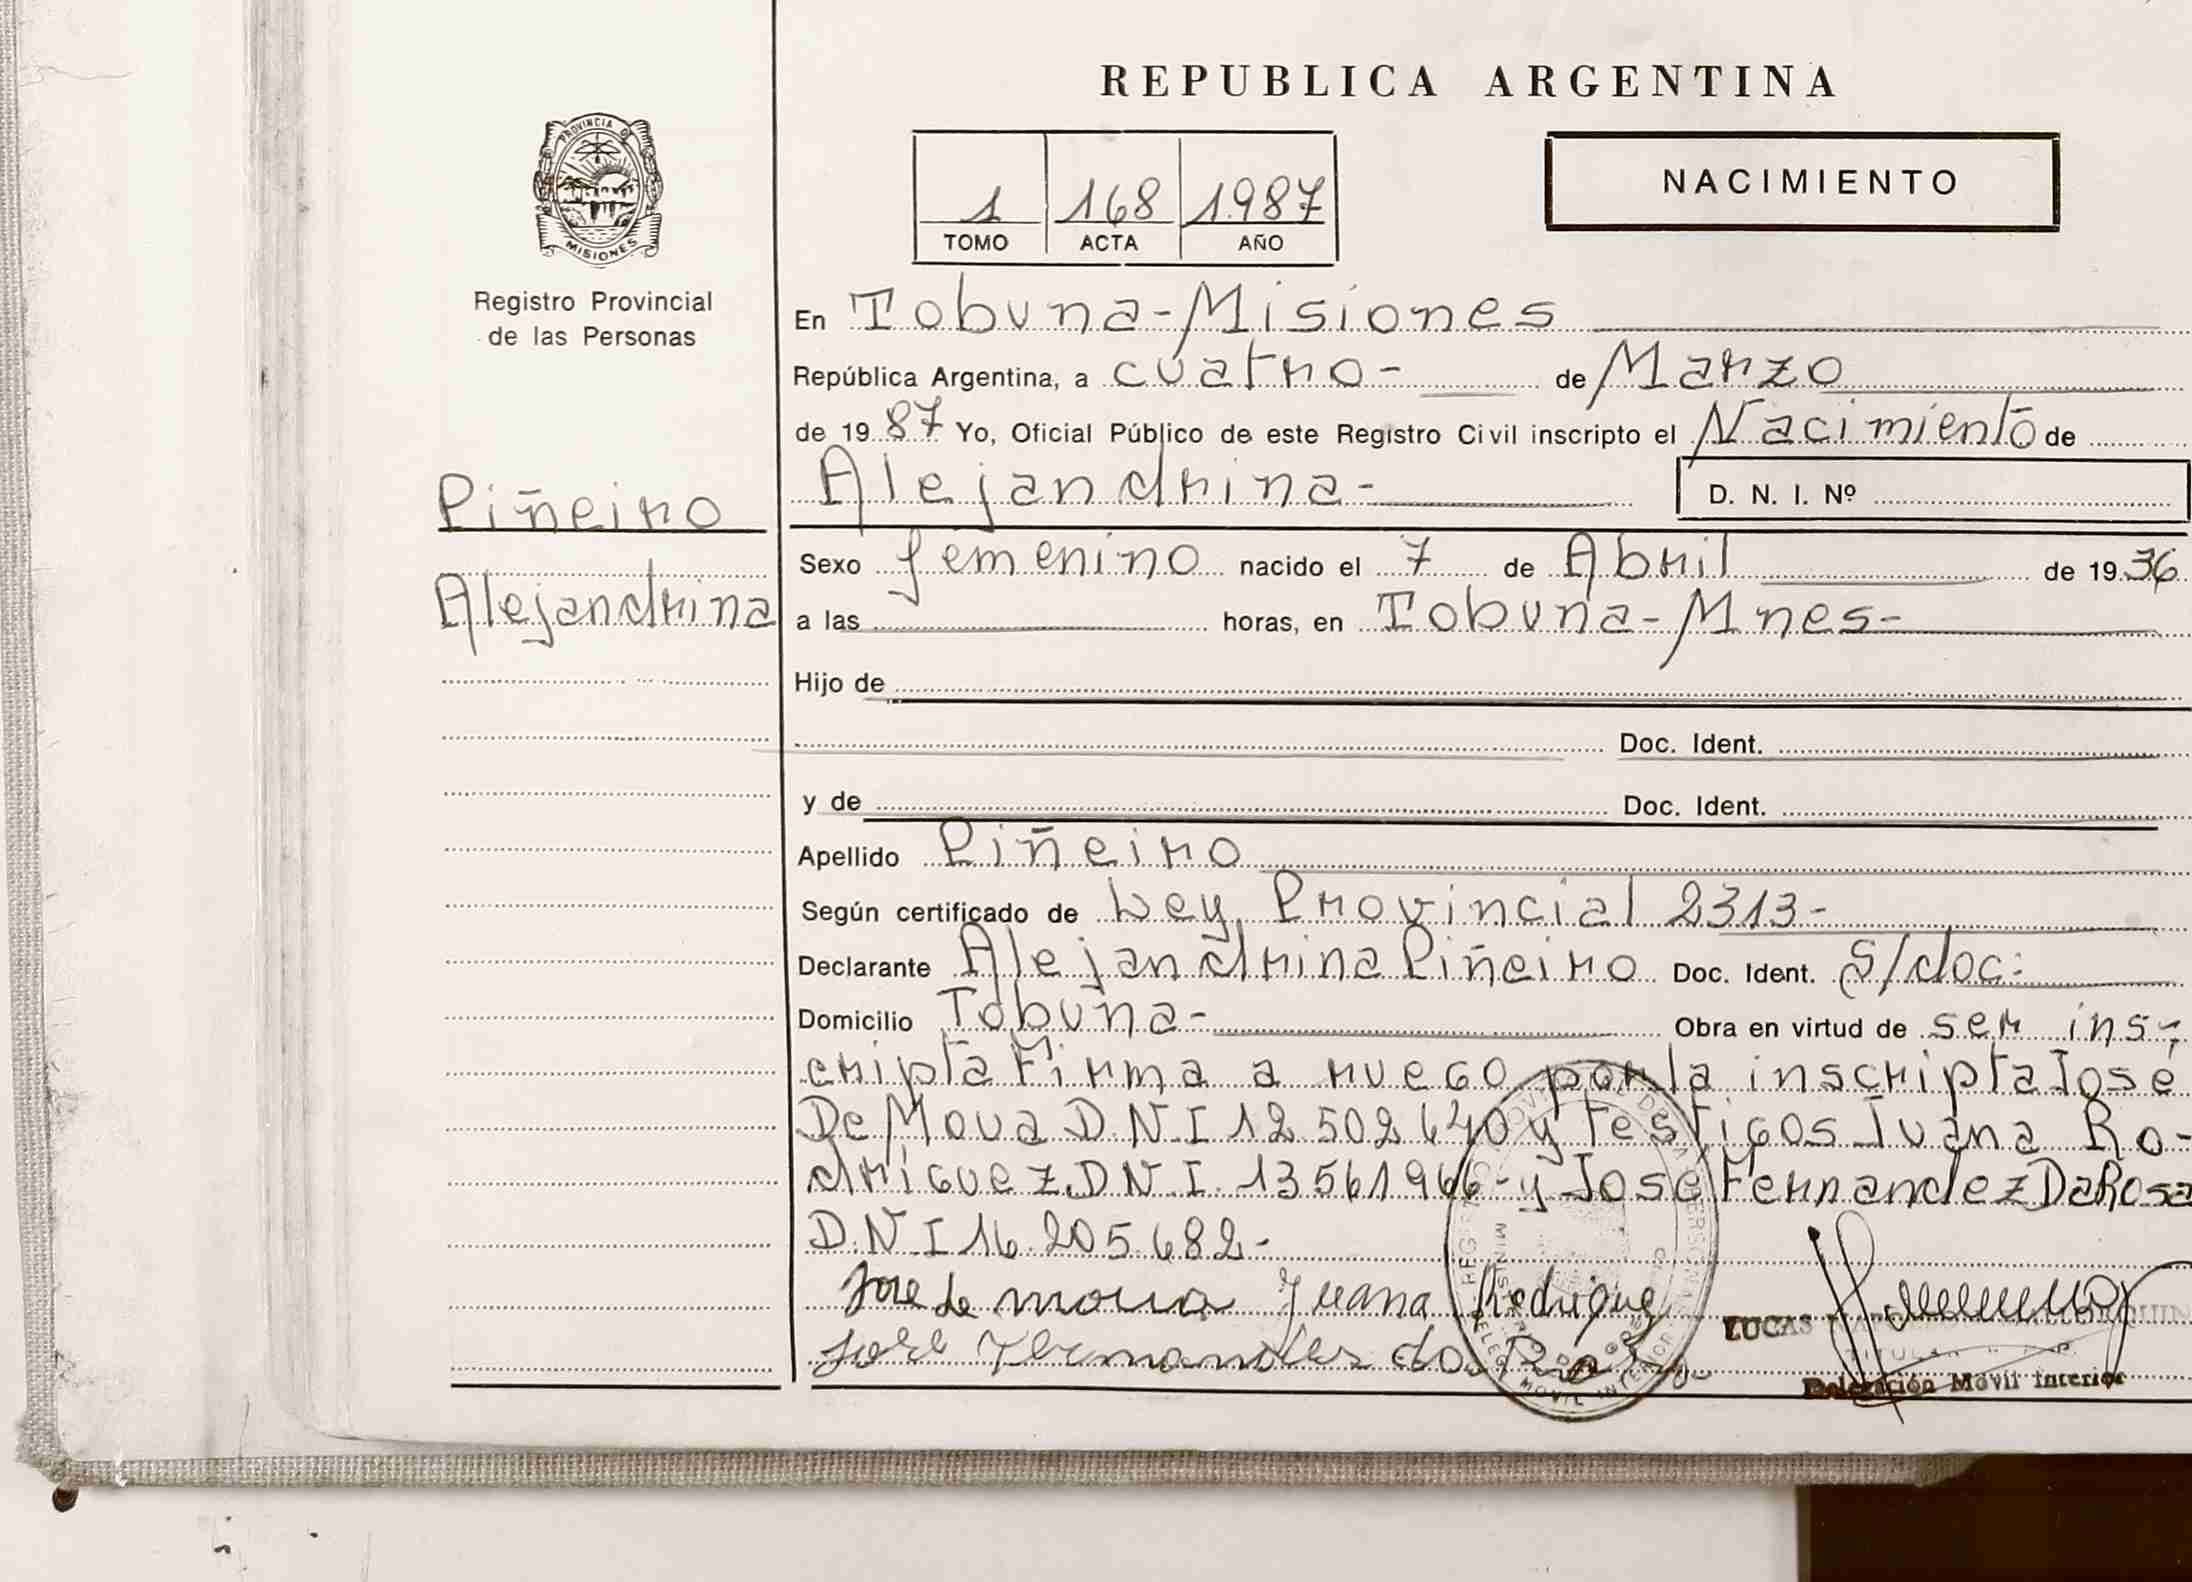 REPUBLICA ARGENTINA
PROVINCIA D
MISIONES
Registro Provincial
de las Personas
1 168 1987
TOMO ACTA AÑO
NACIMIENTO
En Tobuna-Misiones
República Argentina, a cuatro- de Marzo
de 1987 Yo, Oficial Público de este Registro Civil inscripto el Nacimiento de
Piñeiro
Alejandrina-
D. N. I. Nº
Alejandrina
Sexo femenino nacido el 7 de Abril de 1936
a las horas, en Tobuna-Mnes-
Hijo de
Doc. Ident.
y de Doc. Ident.
Apellido Piñeiro
Según certificado de Ley Provincial 2313-
Declarante Alejandrina Piñeiro Doc. Ident. S/doc:
Domicilio Tobuna- Obra en virtud de ser ins-
cripta Firma a ruego por la inscripta José
De Moua D.N.I 12 502 640 y Testigos Juana Ro-
driguez D.N.I. 13561966- y Jose Fernandez Da Rosa
D.N.I 16.205.682-
Jose de moua Juana Rodriguez
Jose Fernandes da Rosa
LUCAS
TITULAR
Delegación Móvil Interior